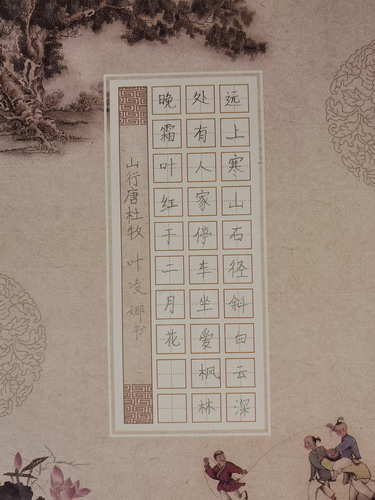 远上寒山石径斜白云深
处有人家停车坐爱枫林
晚霜叶红于二月花
山行唐杜牧 叶凌娜书